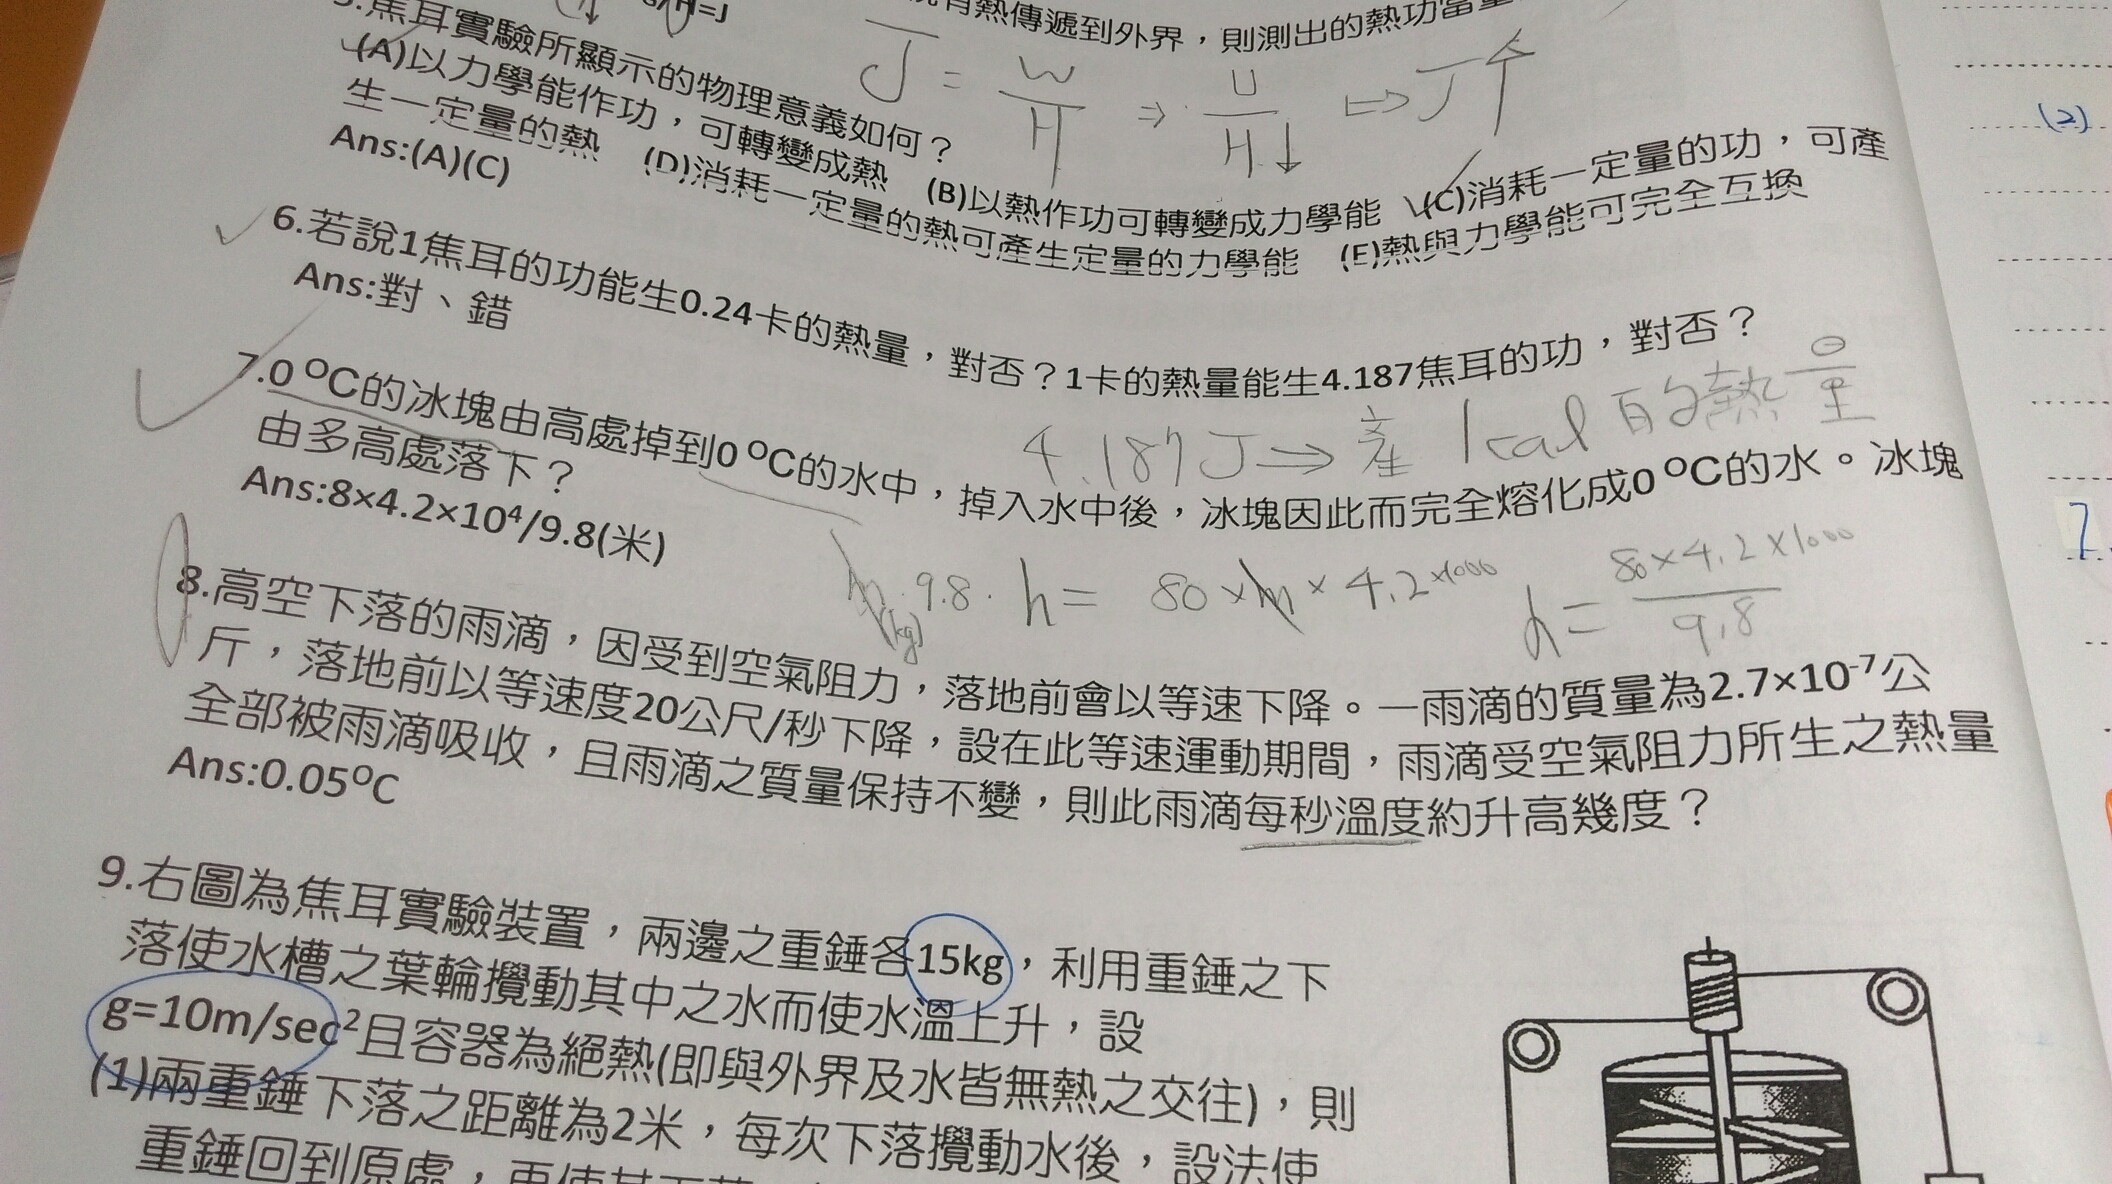 =J
有熱傳遞到外界，則測出的熱功當量
5.焦耳實驗所顯示的物理意義如何？
J = W/H ⇒ U/H↓ ⇒ J↑
(A)以力學能作功，可轉變成熱 (B)以熱作功可轉變成力學能 (C)消耗一定量的功，可產
生一定量的熱 (D)消耗一定量的熱可產生定量的力學能 (E)熱與力學能可完全互換
Ans:(A)(C)
6.若說1焦耳的功能生0.24卡的熱量，對否？1卡的熱量能生4.187焦耳的功，對否？
Ans:對、錯
4.187J ⇒ 產 1cal 的熱量
7.0 ⁰C的冰塊由高處掉到0 ⁰C的水中，掉入水中後，冰塊因此而完全熔化成0 ⁰C的水。冰塊
由多高處落下？
Ans:8×4.2×10⁴/9.8(米)
m(kg)·9.8·h = 80×m×4.2×1000
h = 80×4.2×1000/9.8
8.高空下落的雨滴，因受到空氣阻力，落地前會以等速下降。一雨滴的質量為2.7×10⁻⁷公
斤，落地前以等速度20公尺/秒下降，設在此等速運動期間，雨滴受空氣阻力所生之熱量
全部被雨滴吸收，且雨滴之質量保持不變，則此雨滴每秒溫度約升高幾度？
Ans:0.05⁰C
9.右圖為焦耳實驗裝置，兩邊之重錘各15kg，利用重錘之下
落使水槽之葉輪攪動其中之水而使水溫上升，設
g=10m/sec²且容器為絕熱(即與外界及水皆無熱之交往)，則
(1)兩重錘下落之距離為2米，每次下落攪動水後，設法使
重錘回到原處，再使其下落
(2)
7